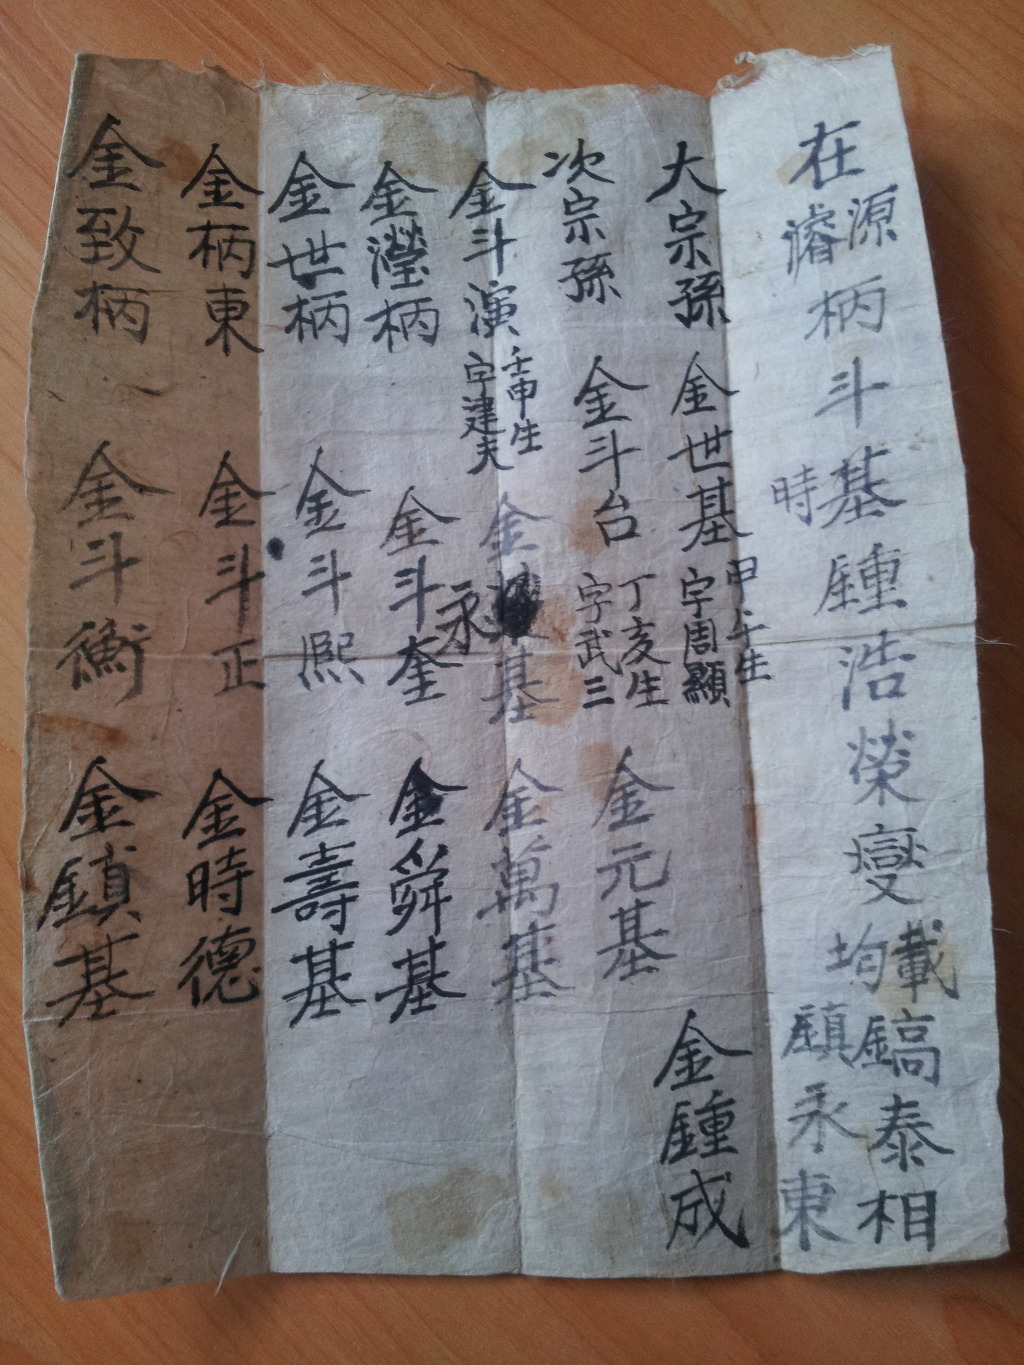 在源濬柄斗基時鍾浩榮變載均鎬鎭泰永相東
大宗孫 金世基 甲午生 字周顯 金鍾成
次宗孫 金斗台 丁亥生 字武三 金元基
金斗演 壬申生 字建夫 金永基 金萬基
金瀅柄 金斗奎 金舜基
金世柄 金斗熙 金壽基
金柄東 金斗正 金時德
金致柄 金斗衡 金鎭基